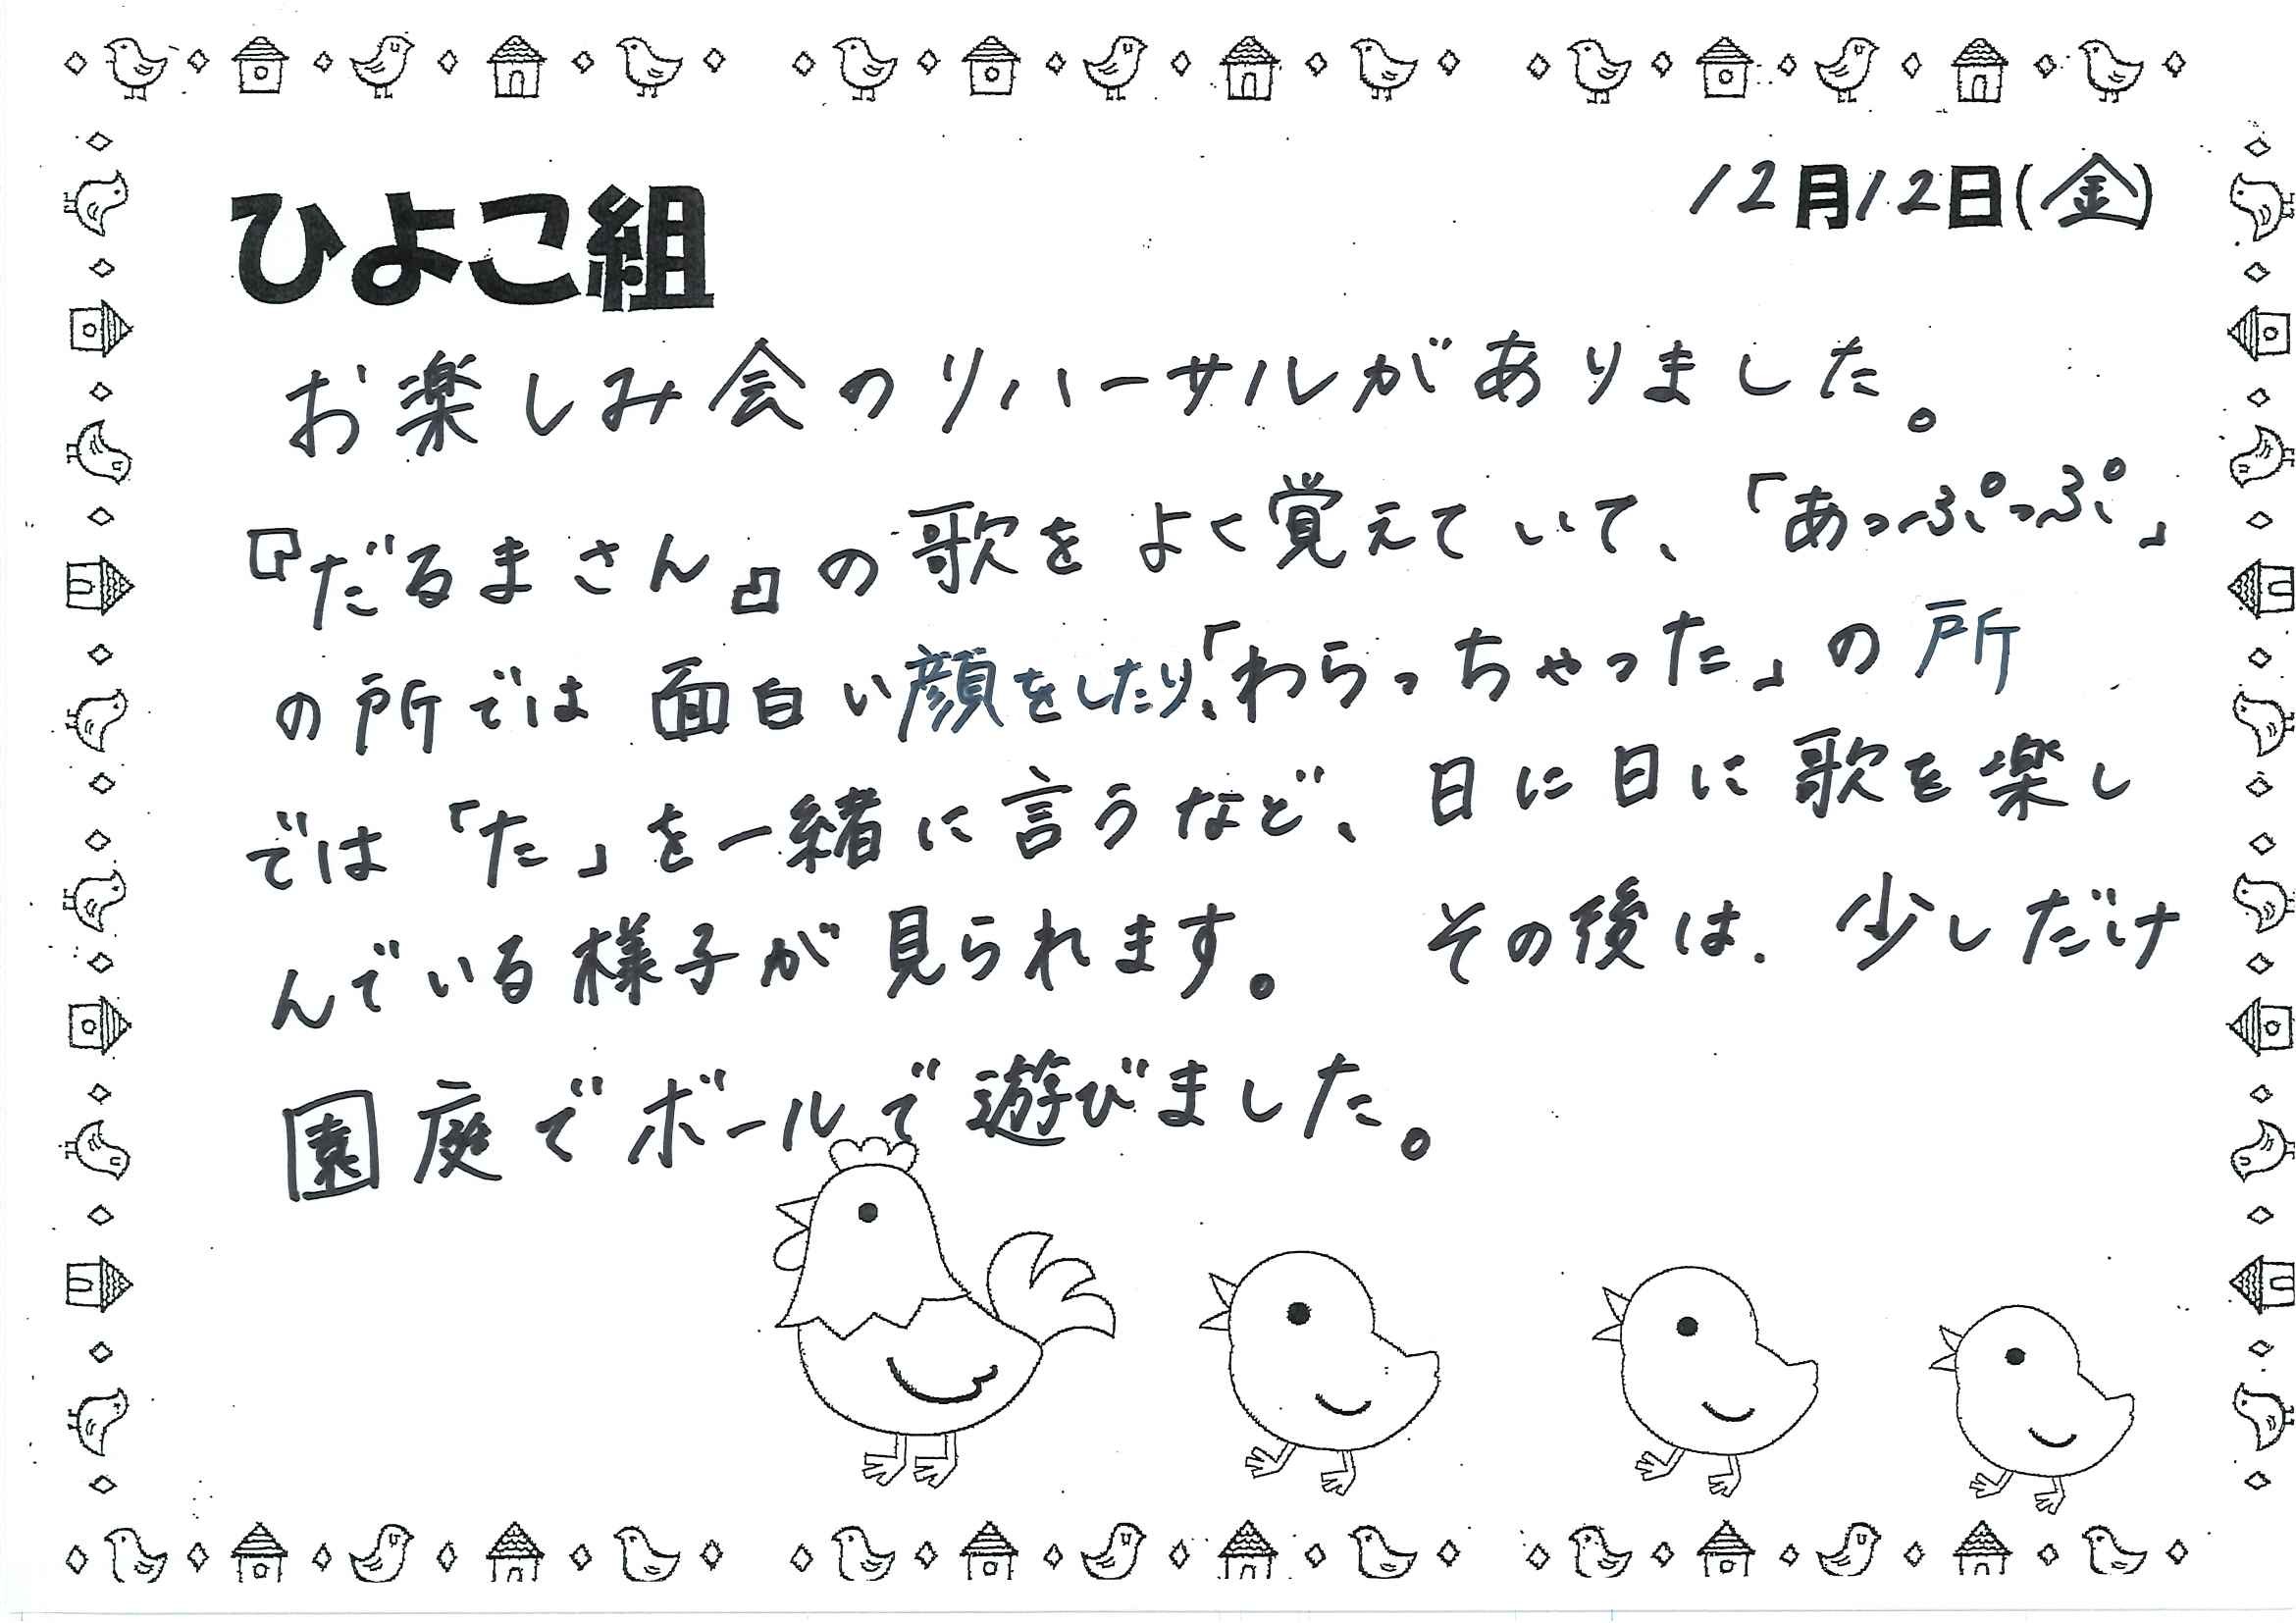 12月12日(金)
ひよこ組
お楽しみ会のリハーサルがありました。
『だるまさん』の歌をよく覚えていて、「あっぷっぷ」
の所では面白い顔をしたり、「わらっちゃった」の所
では「た」を一緒に言うなど、日に日に歌を楽し
んでいる様子が見られます。 その後は、少しだけ
園庭でボールで遊びました。